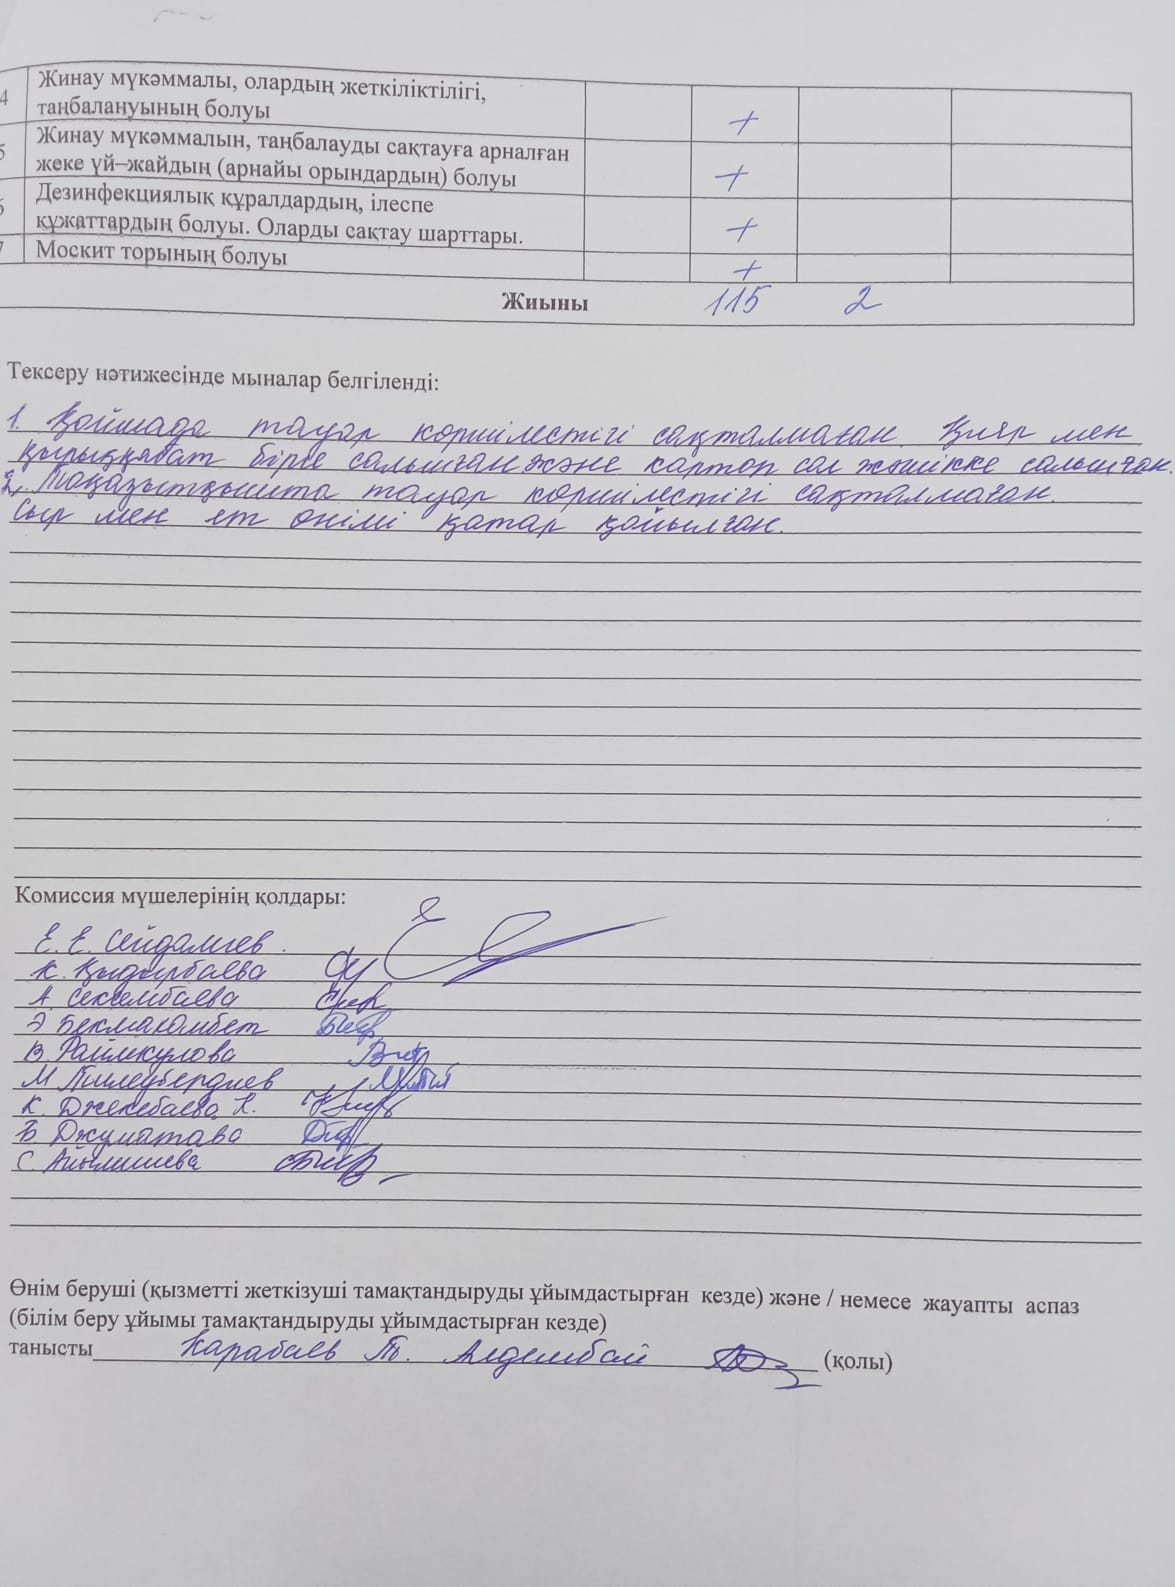 4 Жинау мүкәммалы, олардың жеткіліктілігі,
таңбалануының болуы +
5 Жинау мүкәммалын, таңбалауды сақтауға арналған
жеке үй–жайдың (арнайы орындардың) болуы +
6 Дезинфекциялық құралдардың, ілеспе
құжаттардың болуы. Оларды сақтау шарттары. +
7 Москит торының болуы +
Жиыны 115 2
Тексеру нәтижесінде мыналар белгіленді:
1. Қоймада тауар көршілестігі сақталмаған. Қияр мен
қырыққабат бірге салынған және картоп сал жәшікке салынған.
2. Тоңазытқышта тауар көршілестігі сақталмаған.
Сыр мен ет өнімі қатар қойылған.
Комиссия мүшелерінің қолдары:
Е. Е. Сейдалиев
К. Қыдырбаева
А. Секембаева
Э Бекмаханбет
В. Раимкулова
М Тилеубердиев
К. Джекебаева Н.
Б. Джуматава
С.
Өнім беруші (қызметті жеткізуші тамақтандыруды ұйымдастырған кезде) және / немесе жауапты аспаз
(білім беру ұйымы тамақтандыруды ұйымдастырған кезде)
танысты Карабаев Т. (қолы)